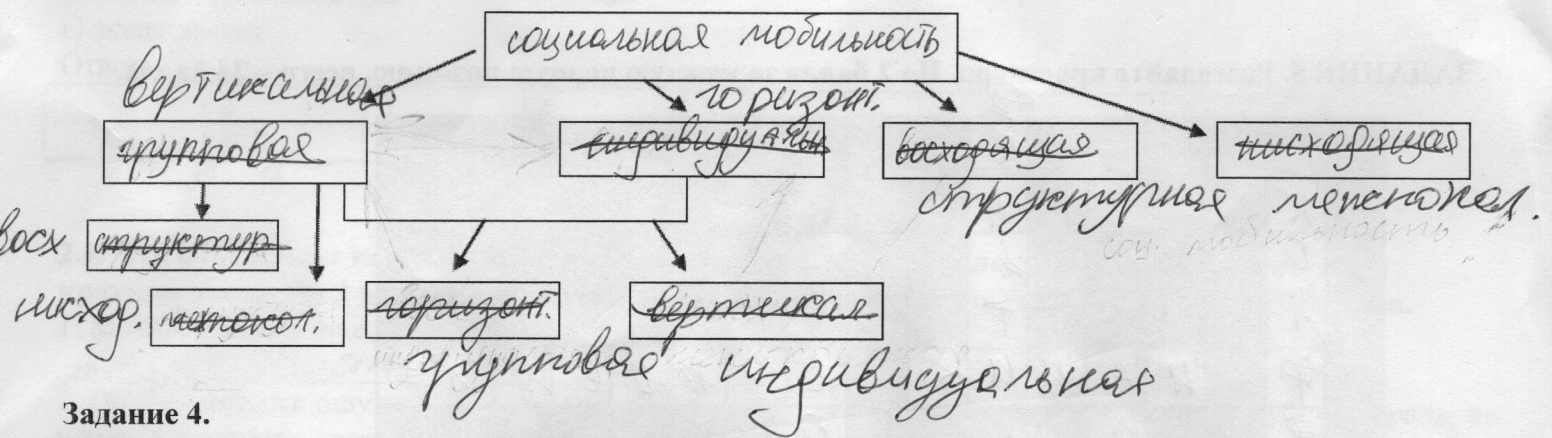 социальная мобильность
вертикальная
горизонт.
групповая
индивидуальн
восходящая
нисходящая
структурная межпокол.
соц. мобильность
восх
структур
нисход.
горизонт.
вертикал
групповая
индивидуальная
Задание 4.